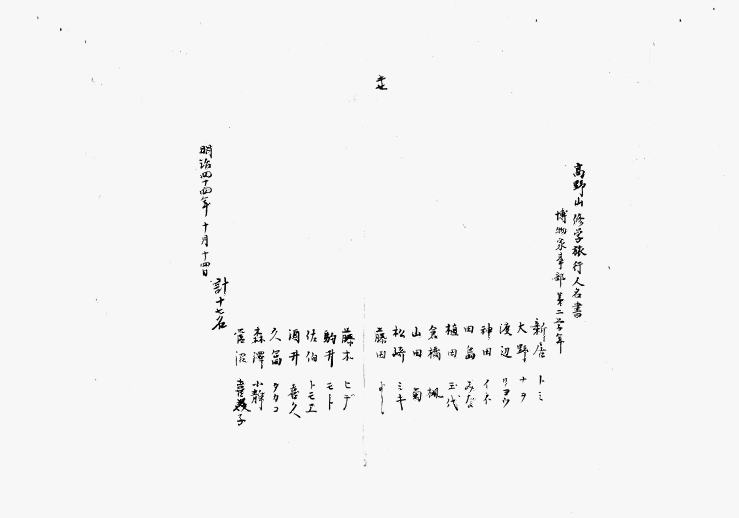 高野山修学旅行人名書
博物家事部第二学年
新居 トミ
大野 ナヲ
渡辺 リヨウ
神田 イネ
田畠 みな
植田 玉代
倉橋 楓
山田 菊
松崎 ミキ
藤田 よし
藤木 ヒデ
駒井 モト
佐伯 トモヱ
酒井 喜久
久富 タカコ
森澤 小静
菅沼 喜美子
計十七名
明治四十四年十月十四日